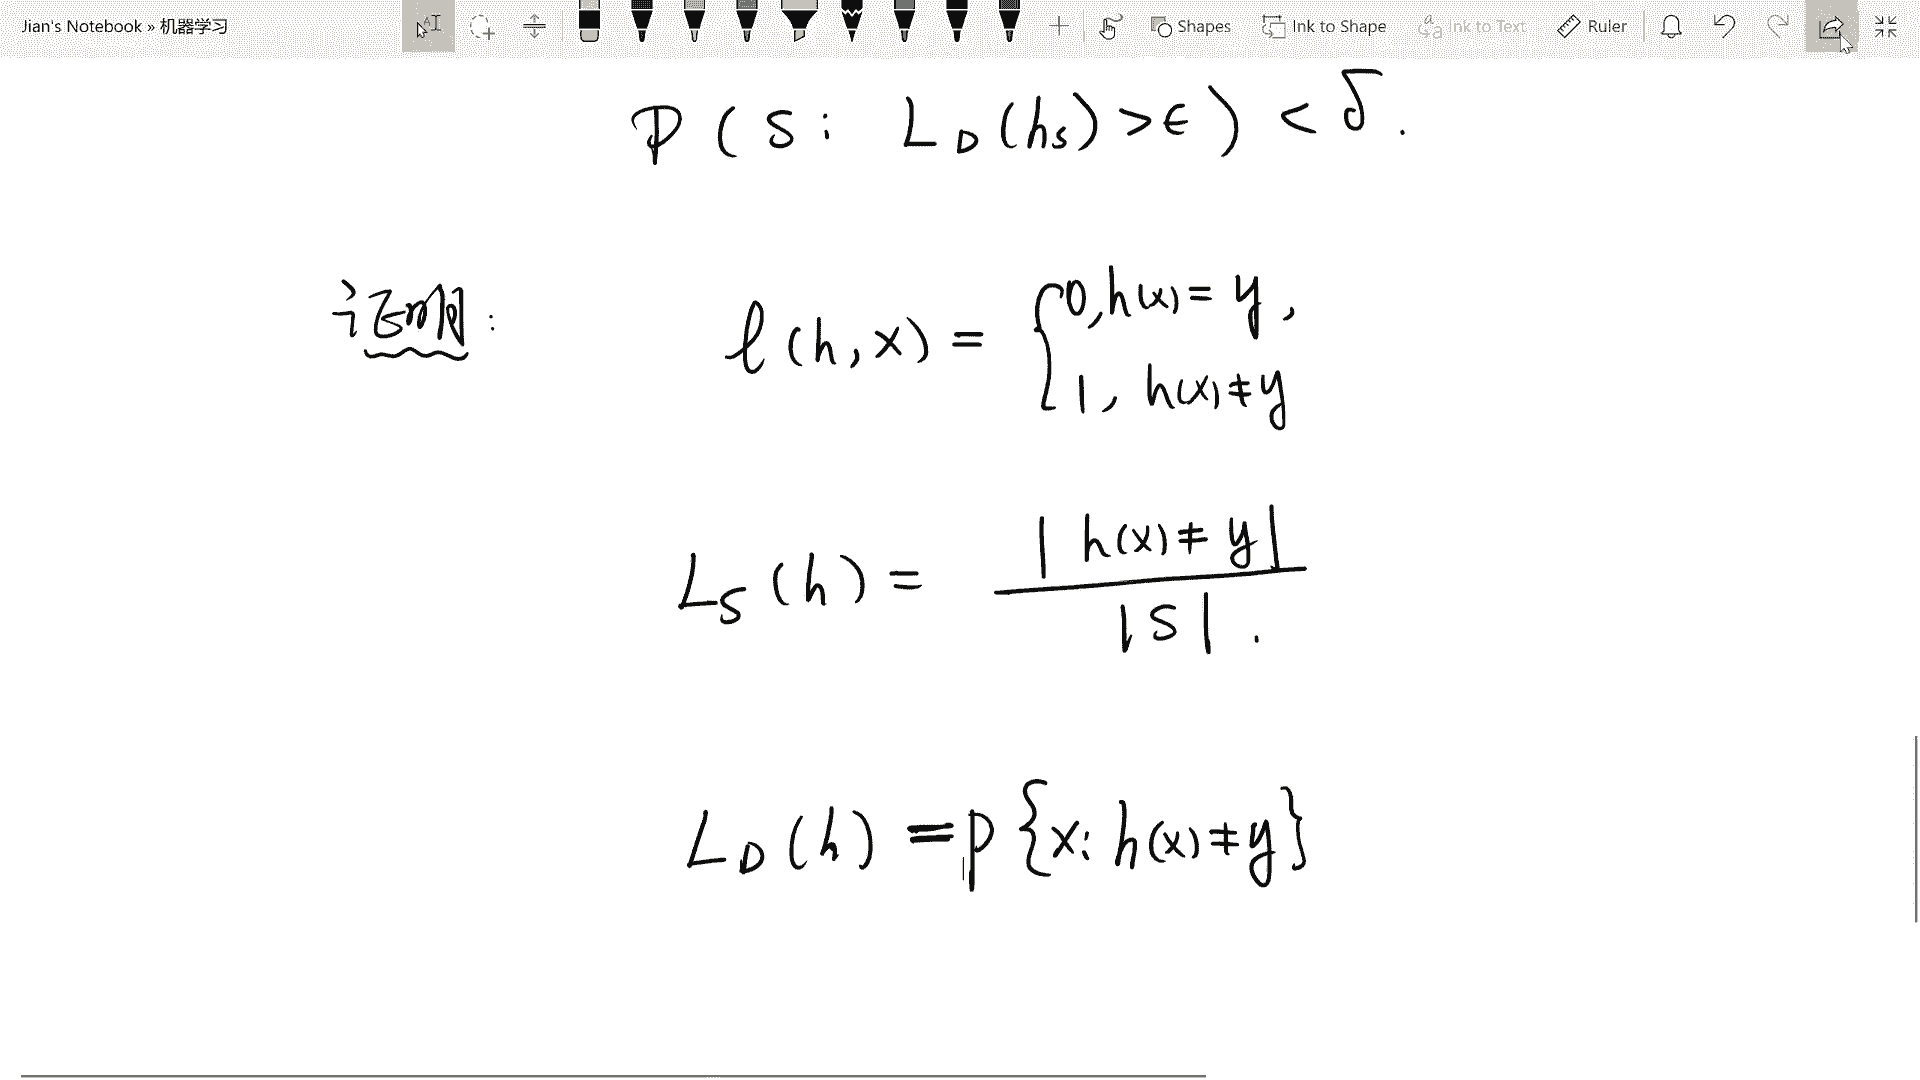 Jian's Notebook » 机器学习 Shapes Ink to Shape Ink to Text Ruler
P ( S : L_D (h_S) > ϵ ) < δ .
证明 : ℓ (h, x) = { 0, h(x) = y ,
1, h(x) ≠ y
L_S (h) = | h(x) ≠ y |
| S | .
L_D (h) = P { x : h(x) ≠ y }